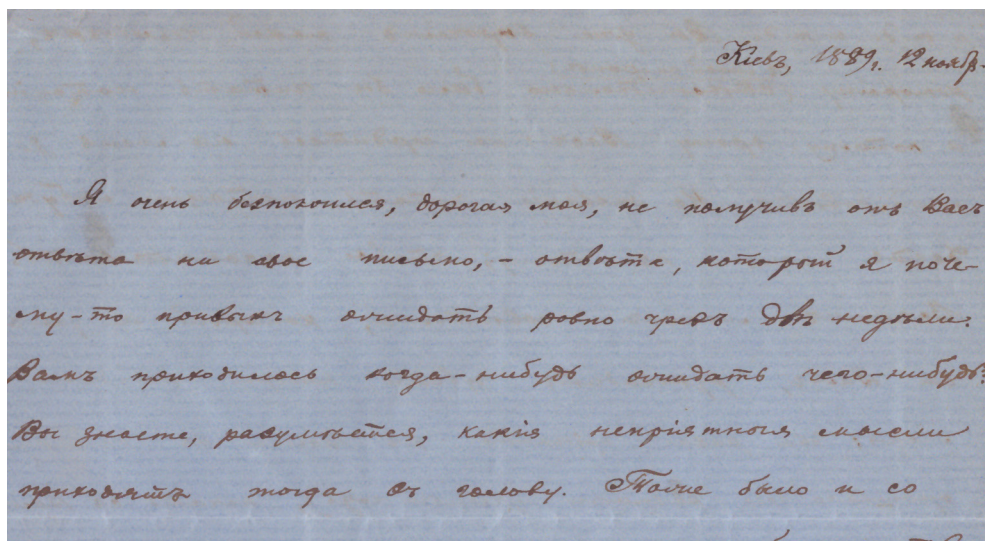 Кіевъ, 1889г. 12 ноябр.
Я очень безпокоился, дорогая моя, не получивъ отъ Васъ
отвѣта на свое письмо, – отвѣта, который я поче-
му-то привыкъ ожидать ровно чрезъ двѣ недѣли.
Вамъ приходилось когда-нибудь ожидать чего-нибудь?
Вы знаете, разумѣется, какія непріятныя мысли
приходятъ тогда въ голову. Тоже было и со